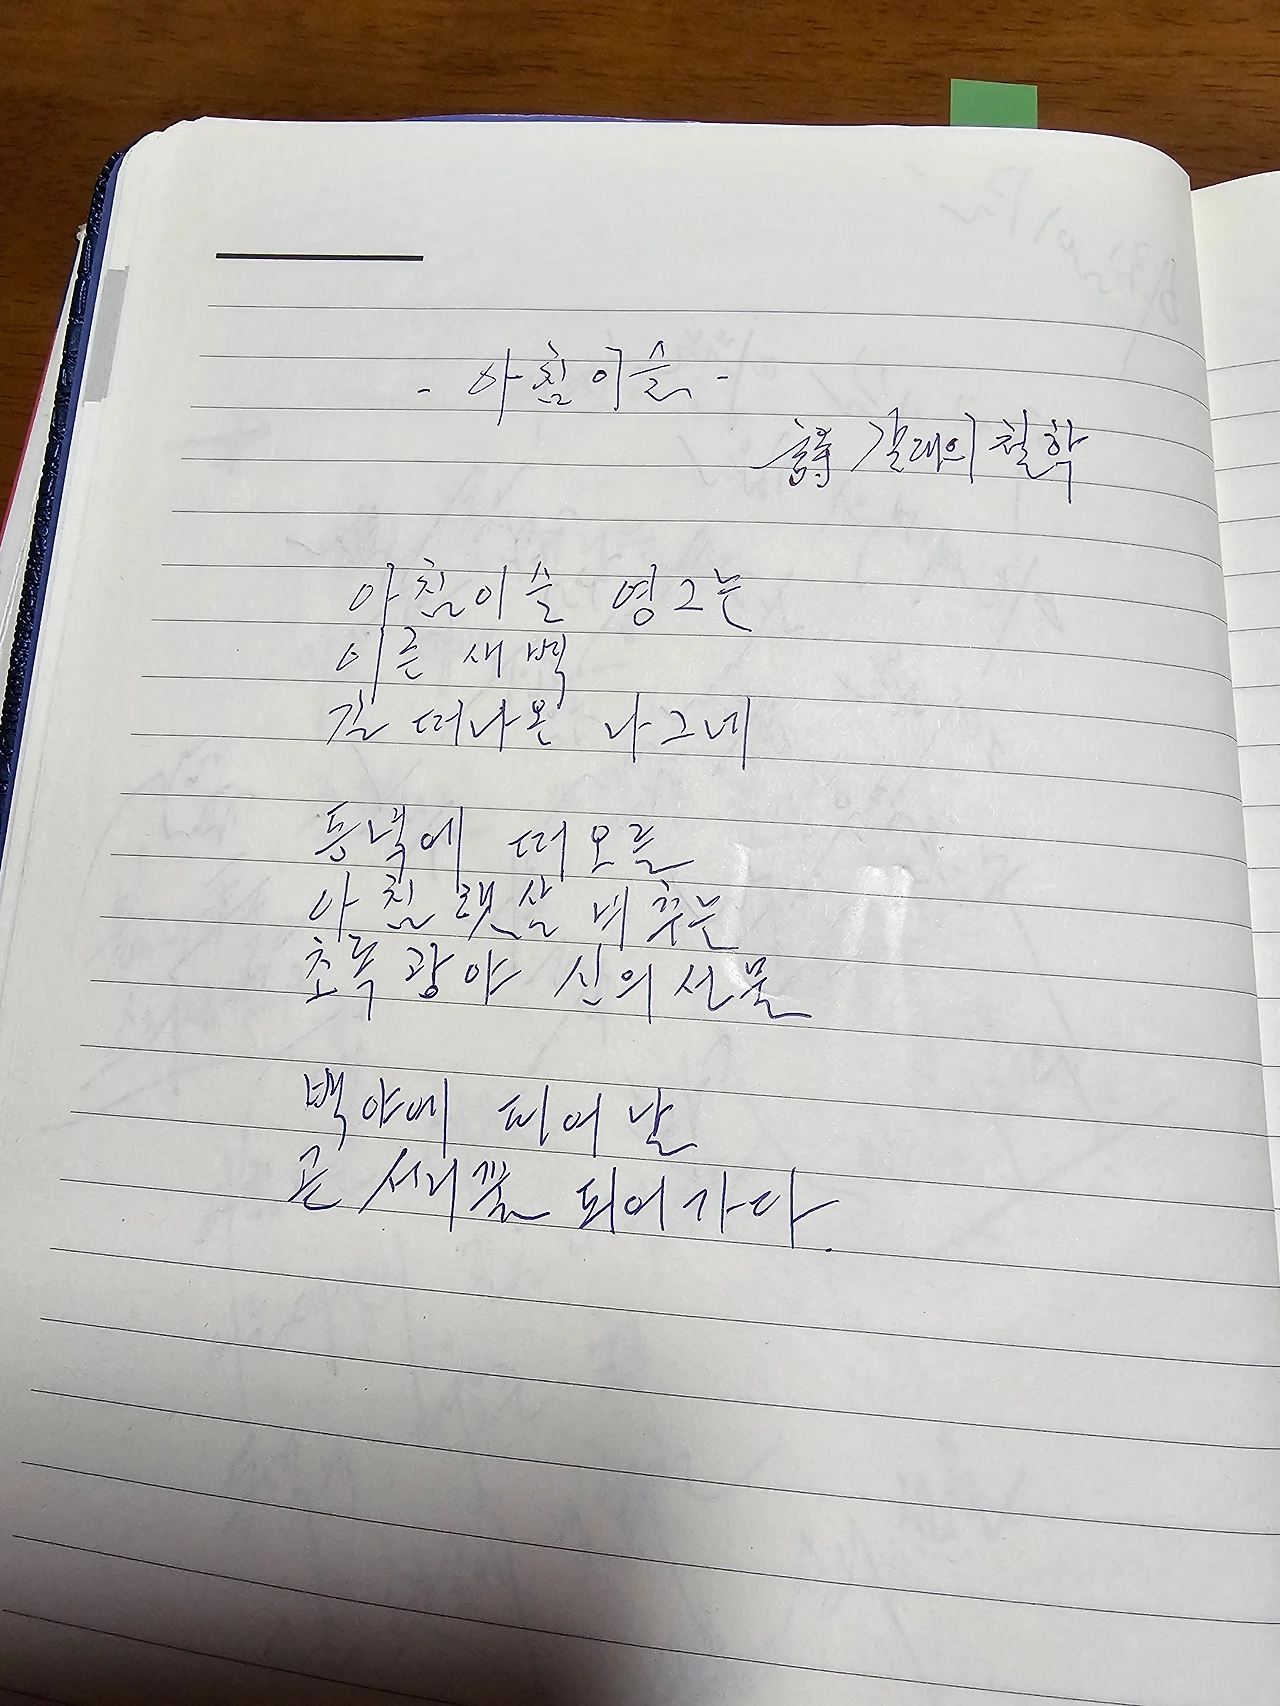 - 아침이슬 -
詩 갈대의 철학
아침이슬 영그는
이른 새벽
길 떠나온 나그네
동녘에 떠오를
아침 햇살 비추는
초록 광야 신의 선물
백야에 피어날
곧 서리꽃 되어가다.